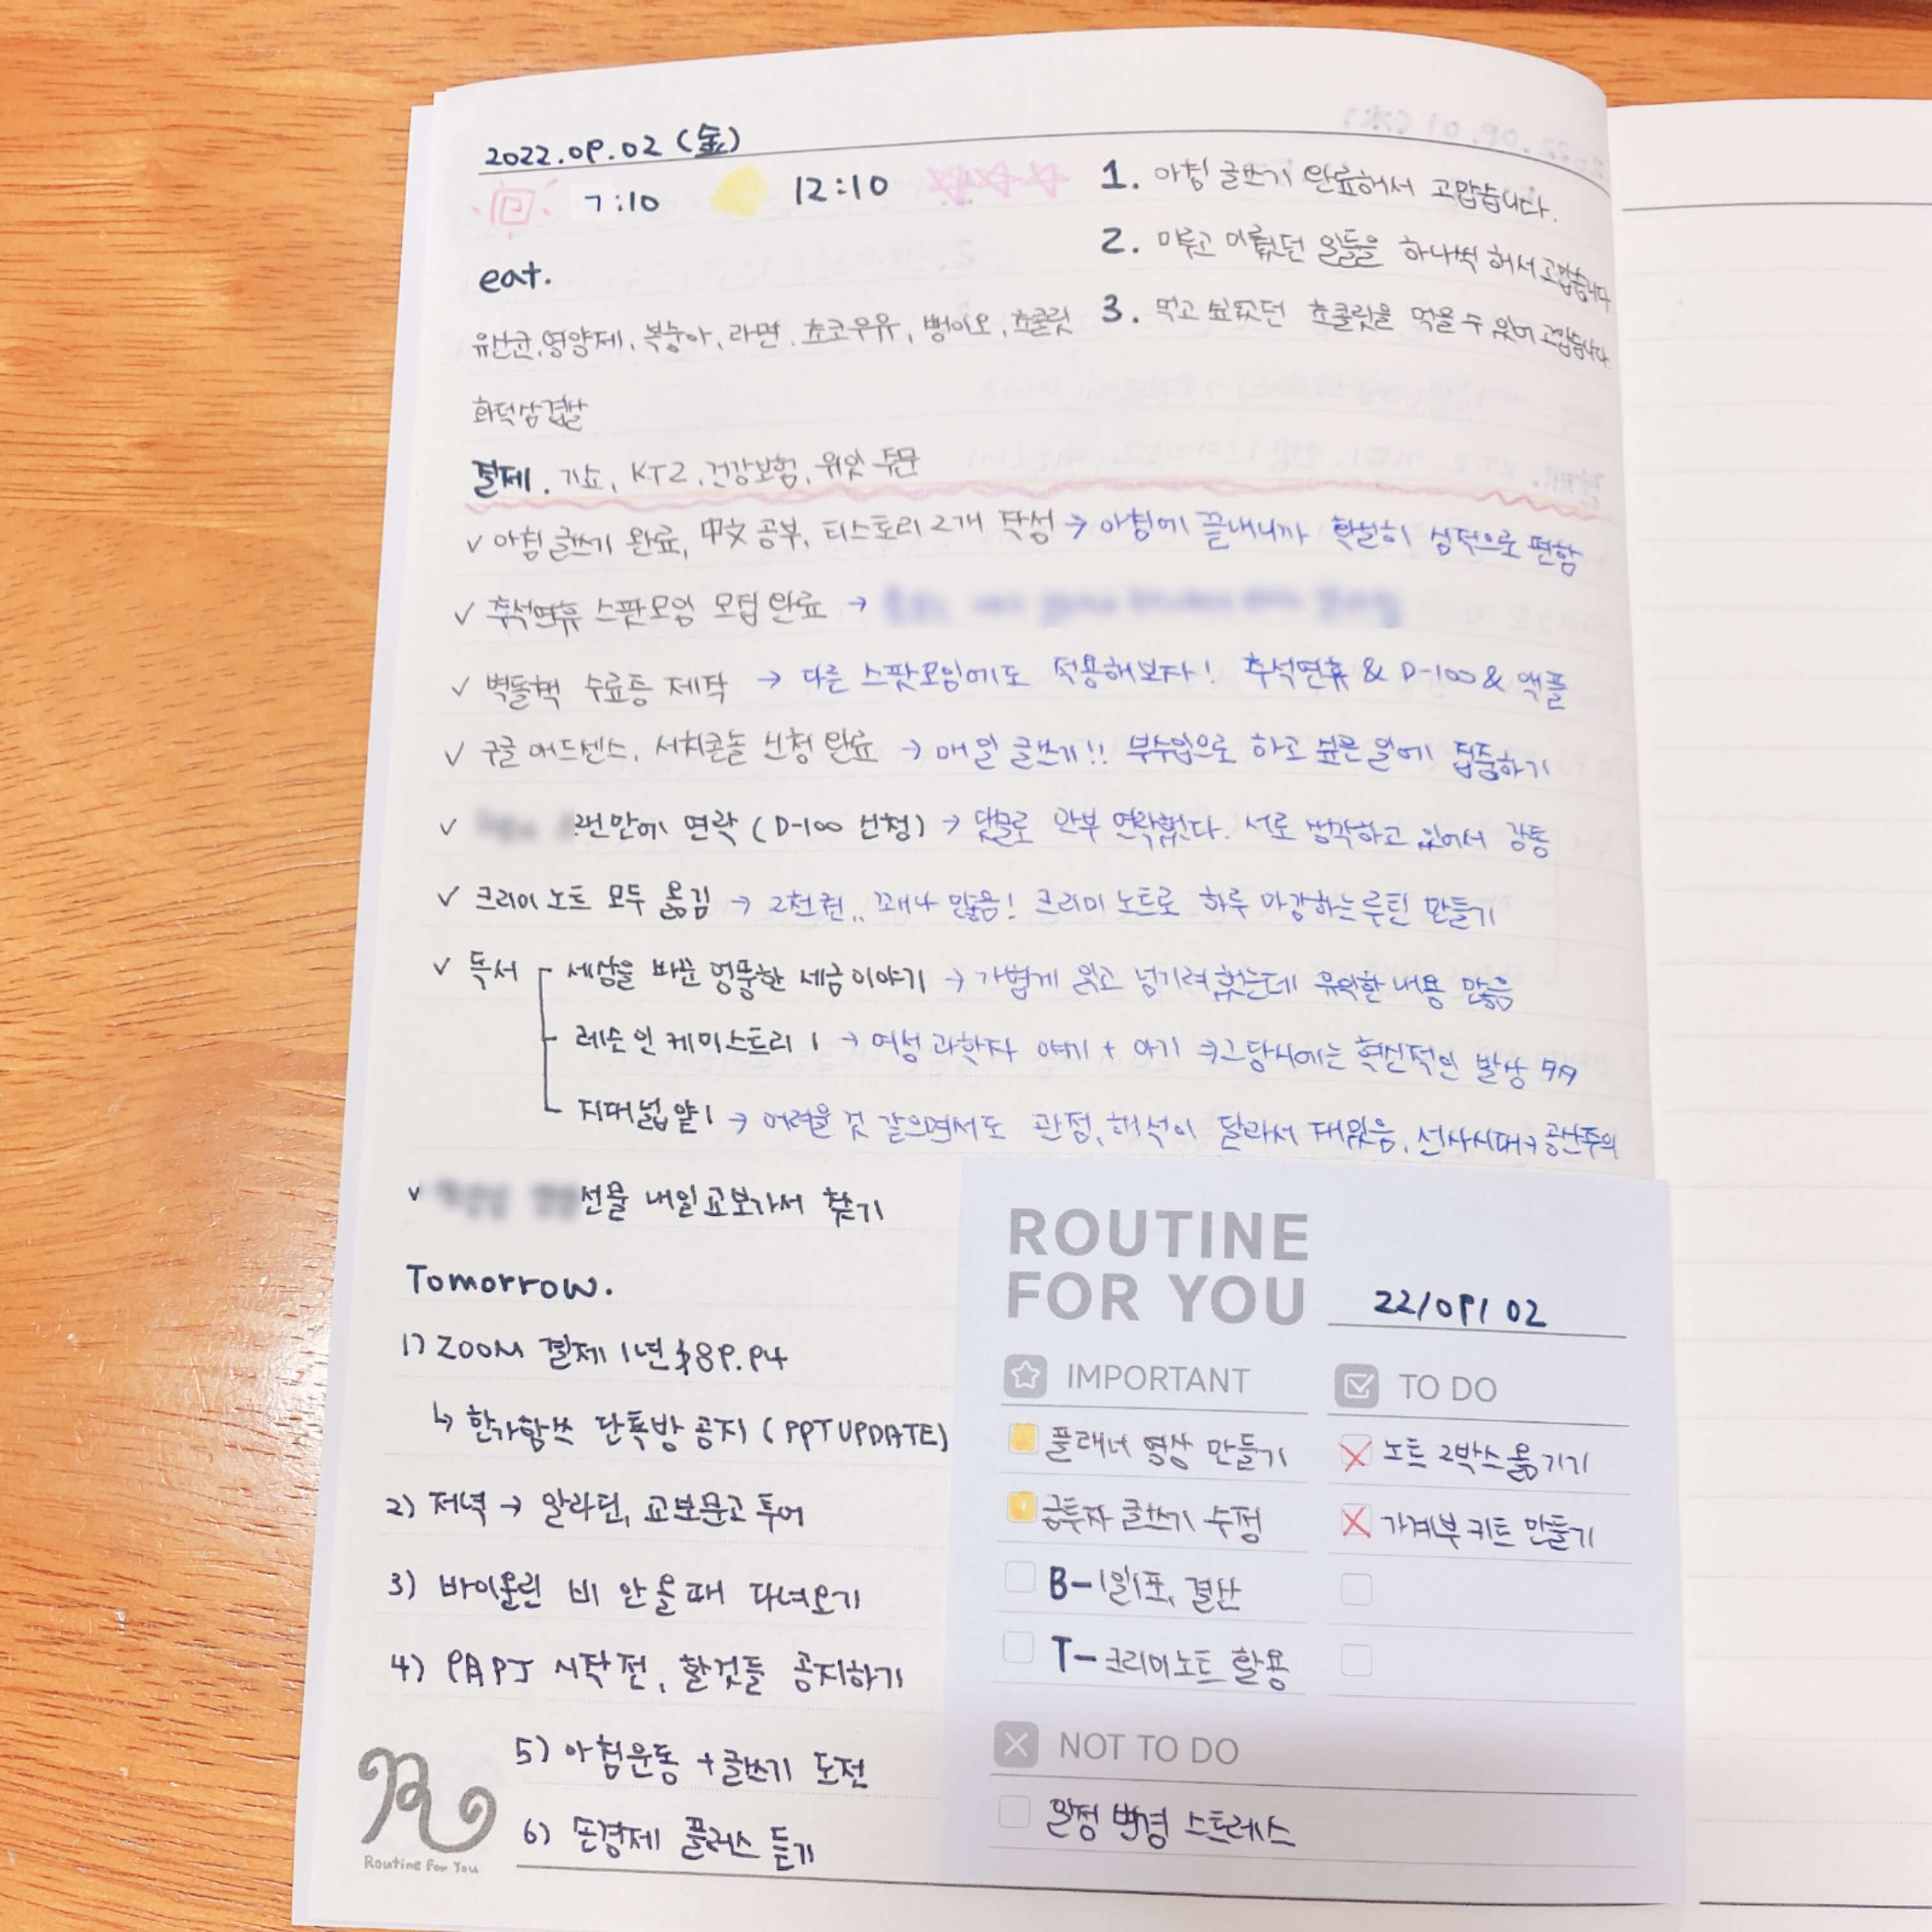 2022.09.02 (金)
7:10 12:10
1. 아침 글쓰기 완료해서 고맙습니다.
2. 미루고 미뤘던 일들을 하나씩 해서 고맙습니다
3. 먹고 싶었던 초콜릿을 먹을 수 있어 고맙습니다
eat.
유산균, 영양제, 복숭아, 라면, 초코우유, 뻥이오, 초콜릿
화덕삼겹살
결제. 가쇼, KT2, 건강보험, 위잇 주문
✓ 아침 글쓰기 완료, 中文 공부, 티스토리 2개 작성 → 아침에 끝내니까 확실히 심적으로 편함
✓ 추석연휴 스팟모임 모집 완료 →
✓ 벽돌책 수료증 제작 → 다른 스팟모임에도 적용해보자! 추석연휴 & D-100 & 액플
✓ 구글 애드센스, 서치콘솔 신청 완료 → 매일 글쓰기!! 부수입으로 하고 싶은 일에 집중하기
✓ 2년만에 연락 (D-100 신청) → 댓글로 안부 연락했다. 서로 생각하고 있어서 감동
✓ 크리미 노트 모두 옮김 → 2천권.. 꽤나 많음! 크리미 노트로 하루 마감하는 루틴 만들기
✓ 독서 세상을 바꾼 엉뚱한 세금 이야기 → 가볍게 읽고 넘기려 했는데 유익한 내용 많음
레슨 인 케미스트리 1 → 여성 과학자 얘기 + 아기 → 그 당시에는 혁신적인 발상 ㅋㅋ
지대넓얕 1 → 어려울 것 같으면서도 관점, 해석이 달라서 재밌음, 선사시대 → 공산주의
✓ 선물 내일 교보가서 찾기
Tomorrow.
1) ZOOM 결제 1년 $89.94
↳ 한가함쓰 단톡방 공지 (PPT UPDATE)
2) 저녁 → 알라딘, 교보문고 투어
3) 바이올린 비 안 올 때 다녀오기
4) PAPJ 시작 전, 할것들 공지하기
5) 아침운동 + 글쓰기 도전
6) 손경제 플러스 듣기
Routine For You
ROUTINE
FOR YOU
22/09/02
IMPORTANT
플래너 영상 만들기
공투자 글쓰기 수정
B-1일1포, 결산
T-크리미노트 활용
TO DO
노트 2박스 옮기기
가계부 키트 만들기
NOT TO DO
일정 변경 스트레스